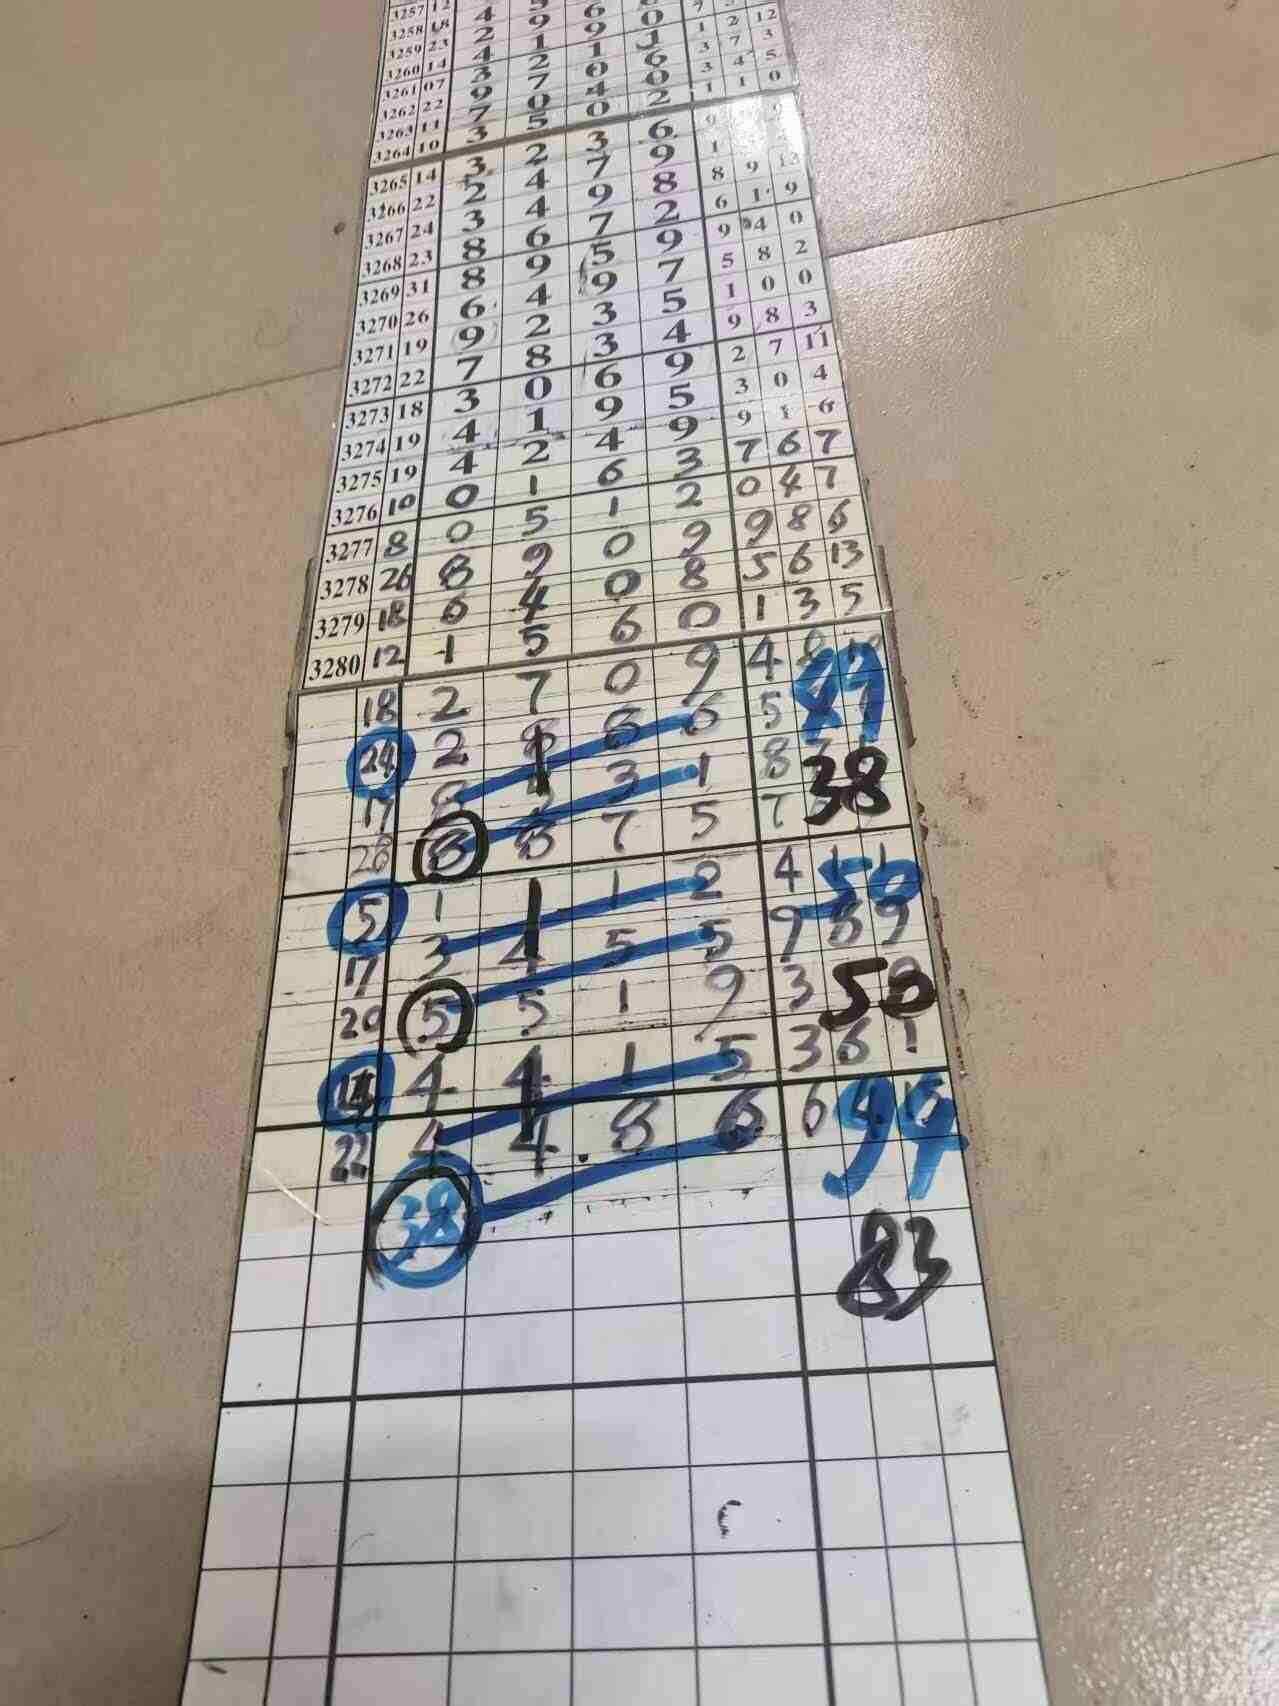 3257 12
3258 18 4
3259 23 2 9 6
3260 14 4 1 9 0
3261 07 3 2 1 1 1 2 12
3262 22 9 7 0 6 3 7 3
3263 11 7 0 4 0 3 4 5
3264 10 3 5 0 2 1 1 0
3265 14 3 2 3 6 9
3266 22 2 4 7 9 1
3267 24 3 4 9 8 8 9 13
3268 23 8 6 7 2 6 1 9
3269 31 8 9 5 9 9 4 0
3270 26 6 4 9 7 5 8 2
3271 19 9 2 3 5 1 0 0
3272 22 7 8 3 4 9 8 3
3273 18 3 0 6 9 2 7 11
3274 19 4 1 9 5 3 0 4
3275 19 4 2 4 9 9 1 6
3276 10 0 1 6 3 7 6 7
3277 8 0 5 1 2 0 4 7
3278 26 8 9 0 9 9 8 6
3279 18 6 4 0 8 5 6 13
3280 12 1 5 6 0 1 3 5
18 2 7 0 9 4 8
89
24 2 8 8 6 5
17 8 3 1 8
38
28 8 8 7 5 7
5 1 1 1 2 4 1 1
50
17 3 4 5 5 9 8 9
20 5 5 1 9 3
58
14 4 4 1 5 3 6 1
22 4 4 8 6 6
94
38
83